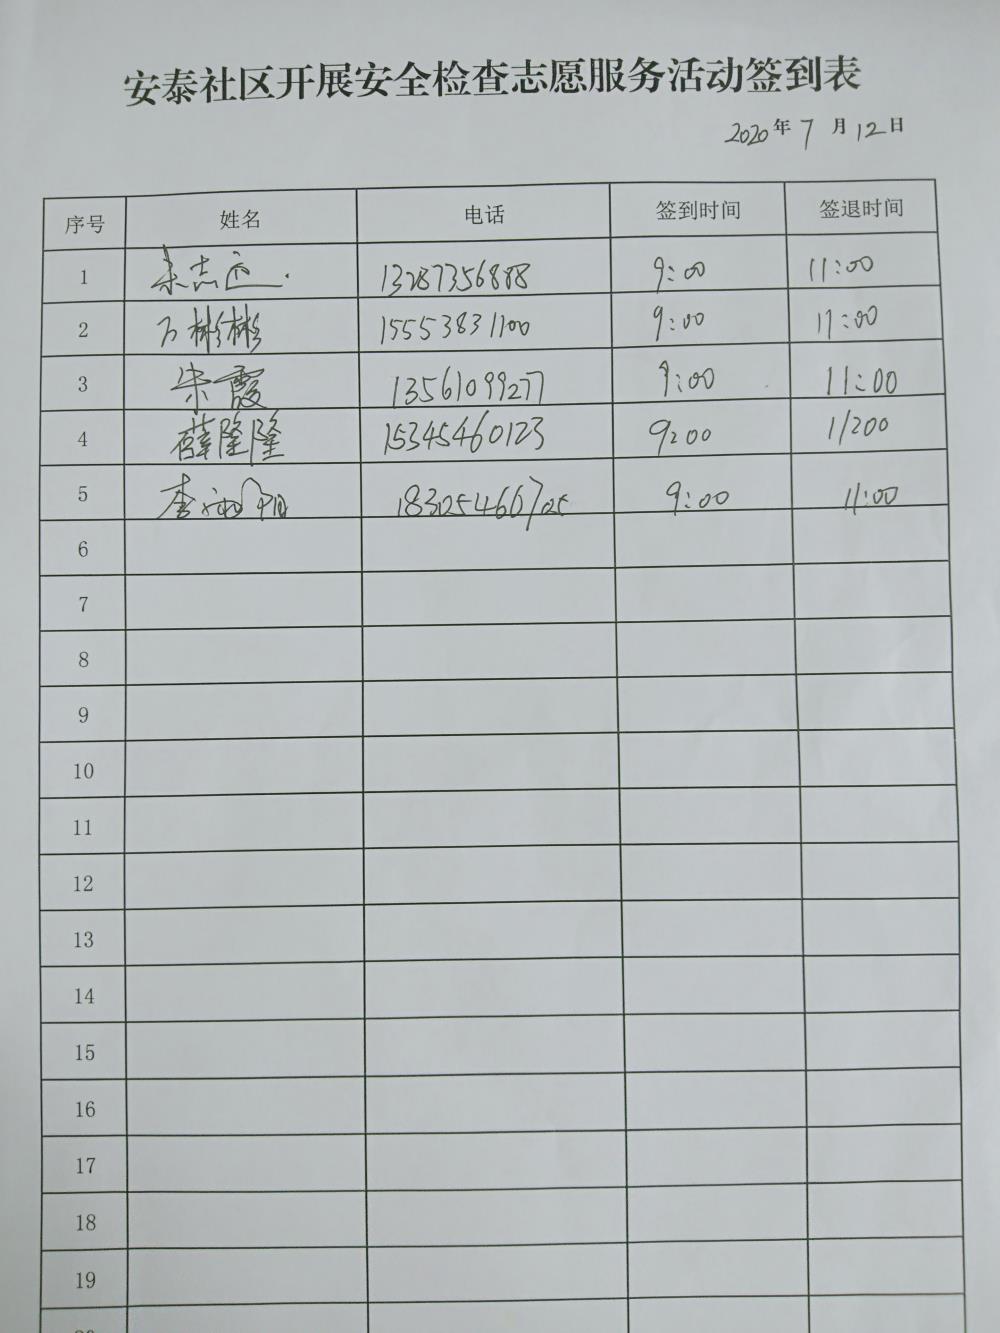 安泰社区开展安全检查志愿服务活动签到表
2020年7月12日
序号 姓名 电话 签到时间 签退时间
1 朱志远 13287356888 9:00 11:00
2 万彬彬 15553831100 9:00 11:00
3 朱霞 13561099277 9:00 11:00
4 薛隆隆 15345460123 9:00 11:00
5 李 9:00 11:00
6
7
8
9
10
11
12
13
14
15
16
17
18
19